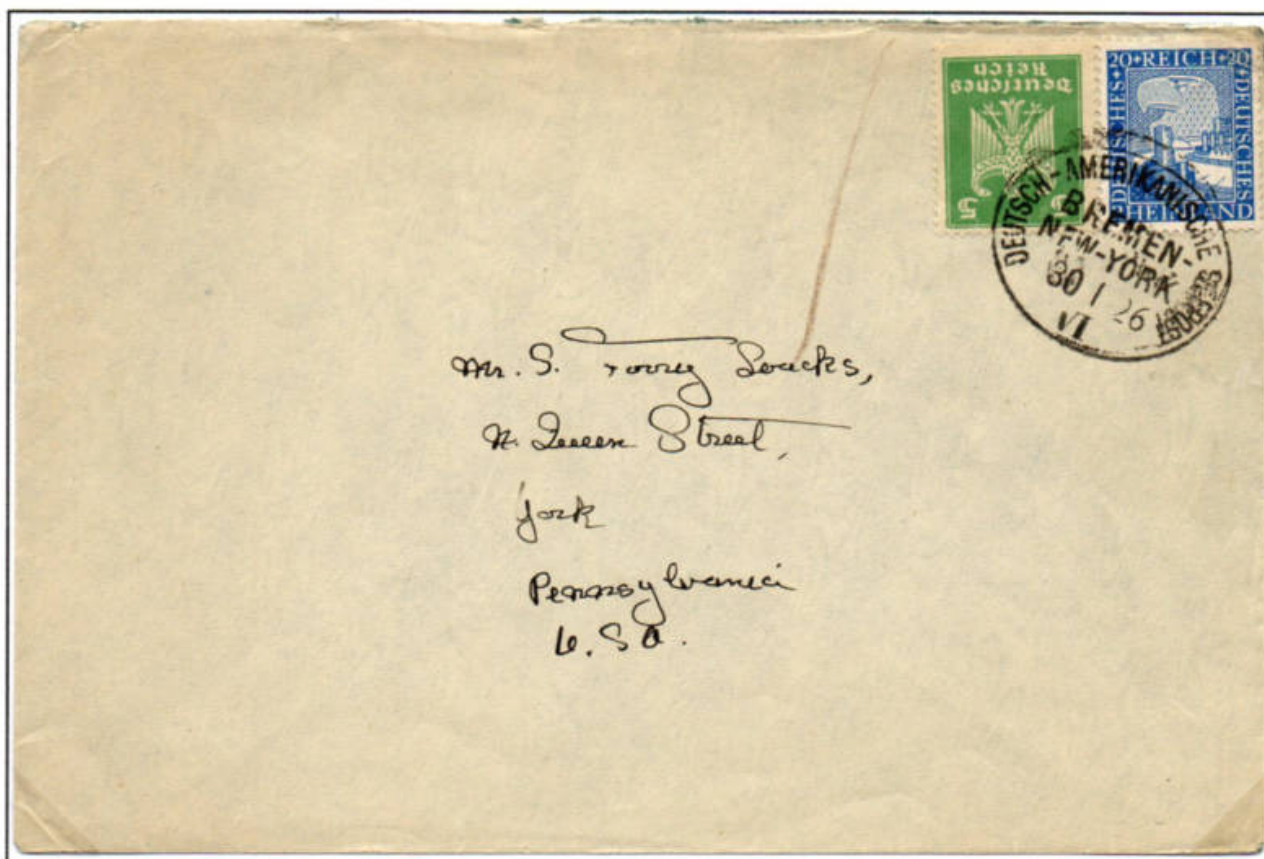 Deutsches
Reich
5 5
20 REICH 20
DEUTSCHES
DEUTSCHES
RHEINLAND
DEUTSCH-AMERIKANISCHE
SEEPOST
BREMEN-
NEW-YORK
30 1 26
VI
Mr. S. Forry Loucks,
N. Queen Street,
York
Pennsylvania
U.S.A.